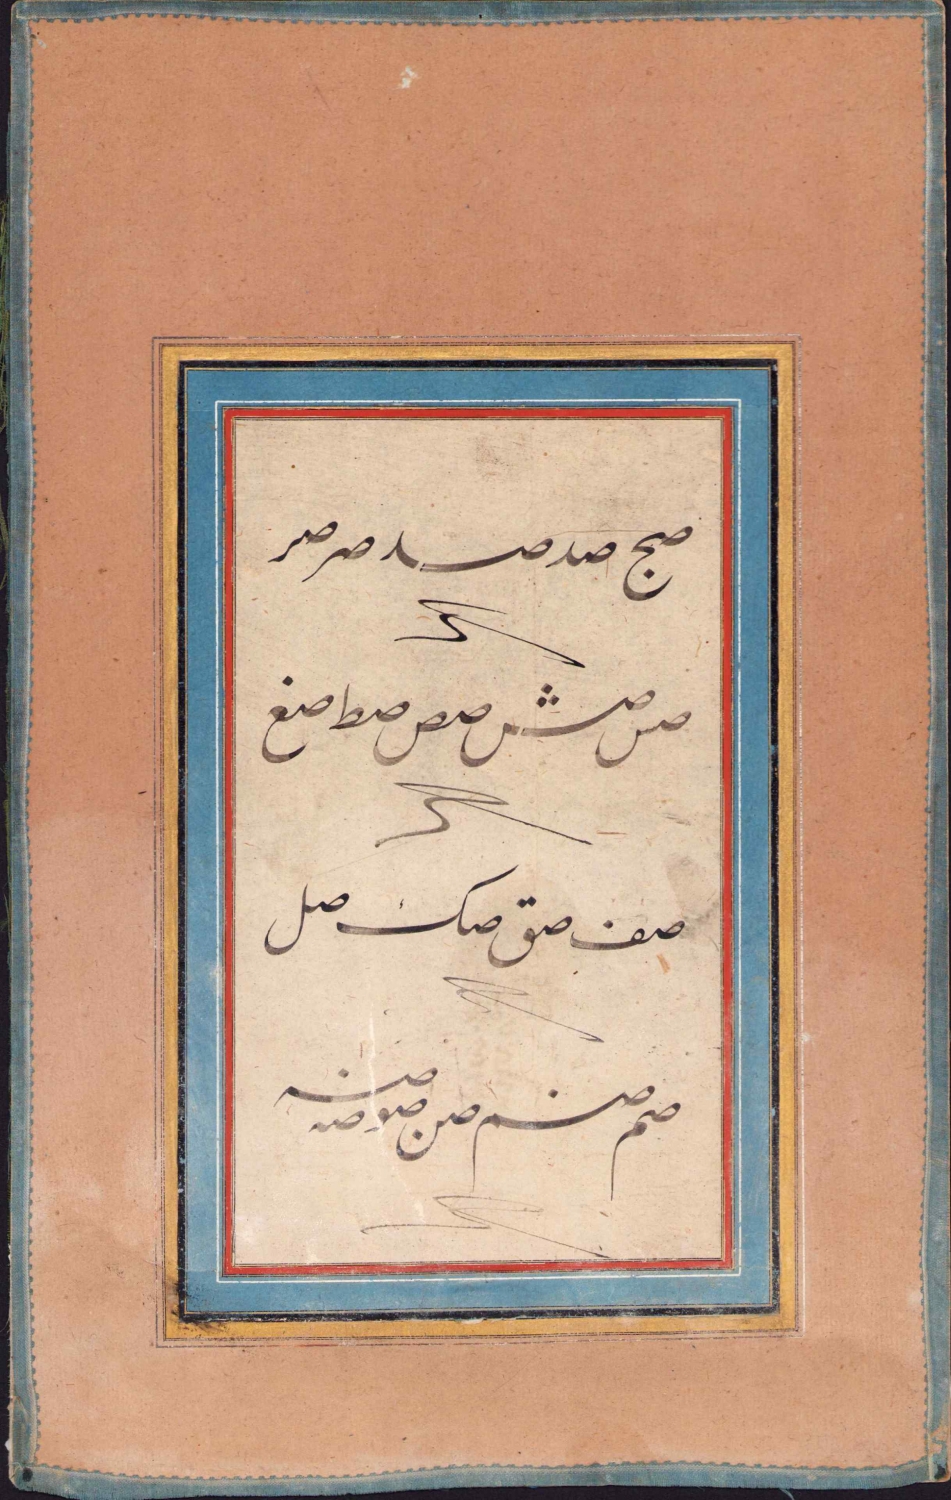 صج صد صد صر صر
صس صش صص صط صغ
صف صق صک صل
صم صم صن صو صه صه